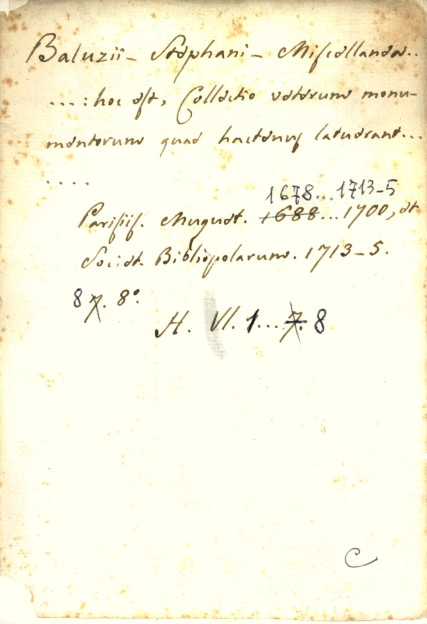 Baluzii - Stephani - Miscellanea..
...: hoc est, Collectio veterum monu-
mentorum quae hactenus latuerant...
....
1678...1713-5
Parisiis. Muguet. 1688...1700, et
Societ. Bibliopolarum. 1713-5.
8 7. 8º.
H. VI. 1... 7. 8
C